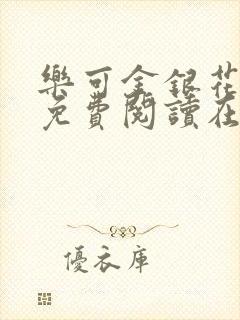 樂可金銀花
免費閱讀在
優衣庫